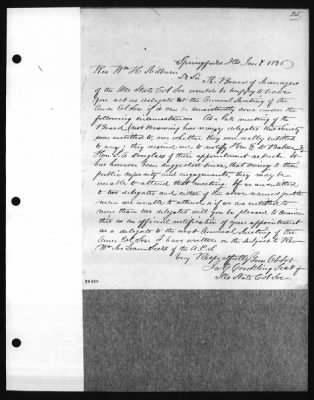 25
Springfield Ills Jan 8 1850
Rev Wm H. Milburn
Dr Sir The Board of Managers
of the Ills State Col Soc would be happy to have
you act as delegate at the Annual Meeting of the
Amn Col Soc if it can be consistently done under the
following circumstances. At a late meeting of the
Board (not knowing how many delegates this Society
was entitled to, nor whether they were really entitled
to any) they desired me to notify Hon E D Baker &
Hon S A Douglass of their appointment as such. It
has however been suggested since, that owing to their
public capacity and engagements, they may be
unable to attend that meeting. If we are entitled
to two delegates and either of the above named gentle
men are unable to attend, or if we are entitled to
more than two delegates will you be pleased to consider
this as an official notification of your appointment
as a delegate to the next Annual Meeting of the
Amn Col Soc. I have written on the subject to Rev
Wm McLean Secty of the A.C.S.
Very Respectfully Your Obt Svt
Jas C Conkling Sect of
Ills State Col Soc